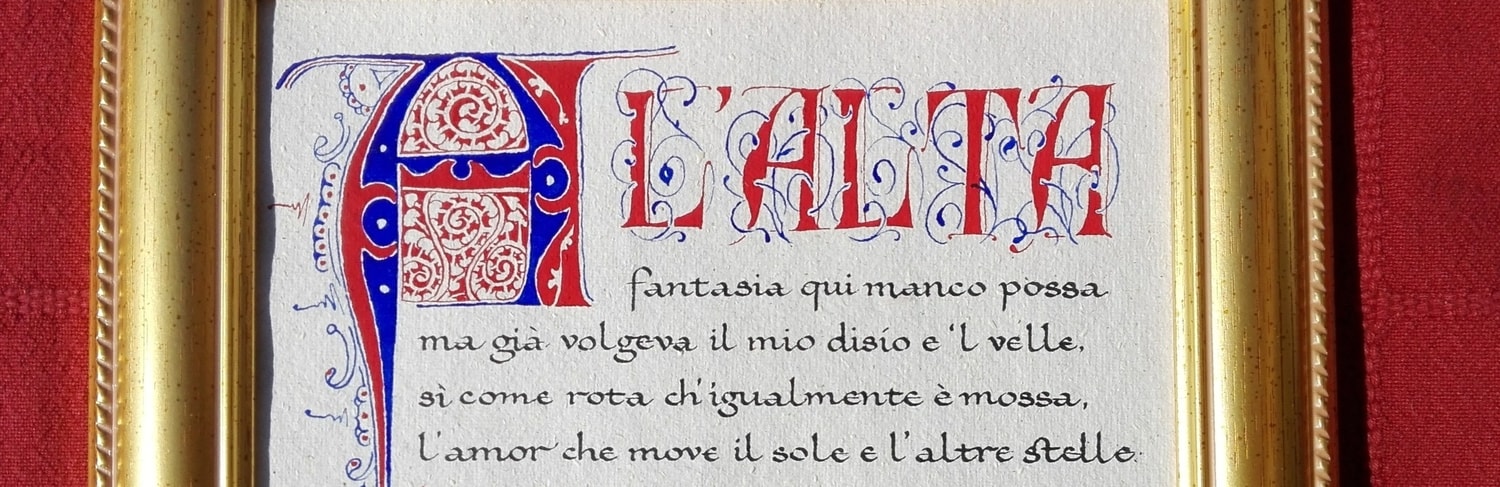 A L'ALTA
fantasia qui manco possa
ma già volgeva il mio disio e 'l velle,
sì come rota ch'igualmente è mossa,
l'amor che move il sole e l'altre stelle.